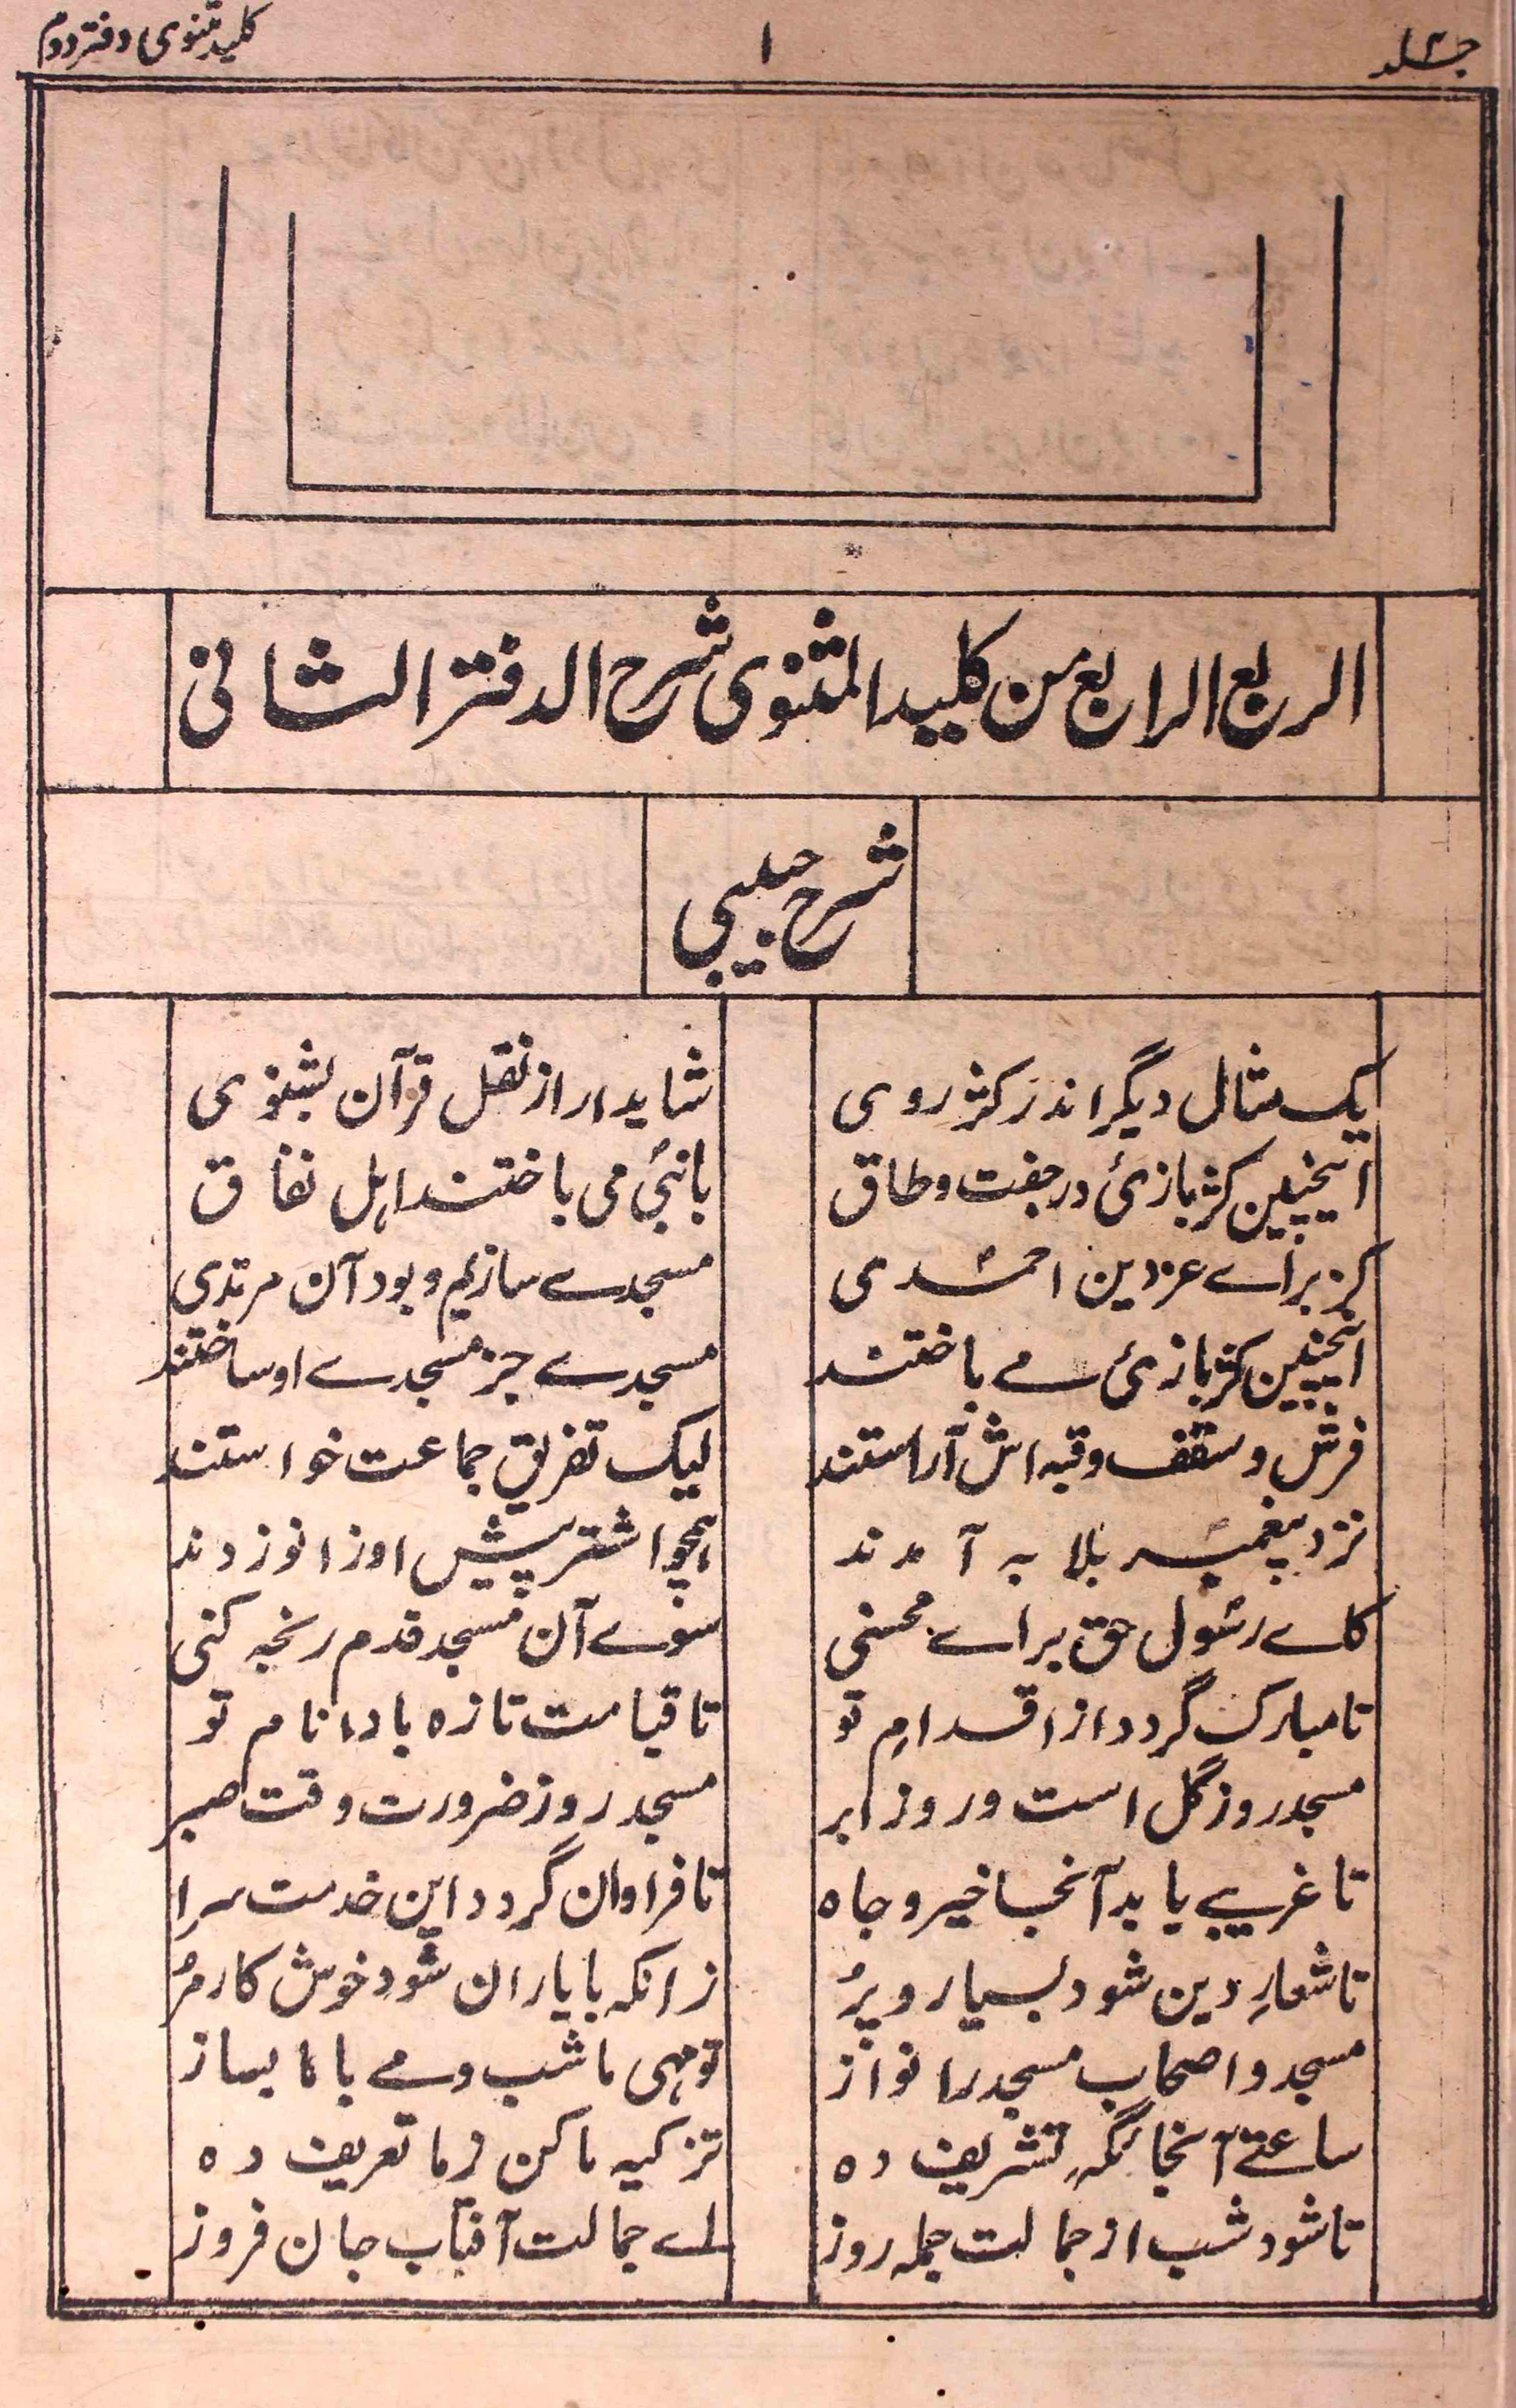 جلد ۴ ۱ کلید مثنوی دفتر دوم
الربع الرابع من کلید المثنوی شرح الدفتر الثانی
شرح حبیبی
یک مثال دیگر اندر کژ روی شاید ار از نقل قرآن بشنوی
اینچنین کژ بازیٔ در جفت و طاق با نبیؐ می باختند اہل نفاق
کز براے عز دین احمدی مسجدے سازیم و بود آن مرتدی
اینچنین کژ بازیٔ مے باختند مسجدے جز مسجدے او ساختند
فرش و سقف و قبہ اش آراستند لیک تفریق جماعت خواستند
نزد پیغمبر بلابہ آمدند ہمچو اشتر پیش او زانو زدند
کاے رسول حق براے محسنی سوے آن مسجد قدم رنجہ کنی
تا مبارک گردد از اقدامِ تو تا قیامت تازہ بادا نام تو
مسجد روز گل است و روز ابر مسجد روز ضرورت وقت صبر
تا غریبے یابد آنجا خیر و جاہ تا فراوان گردد این خدمت سرا
تا شعارِ دین شود بسیار و پُر زانکہ با یاران شود خوش کار مُر
مسجد و اصحاب مسجد را نواز تو مہی ما شب دمے با ما بساز
ساعتے آنجائگہ تشریف دہ تزکیہ ما کن ز ما تعریف دہ
تا شود شب از جمالت جملہ روز اے جمالت آفتاب جان فروز